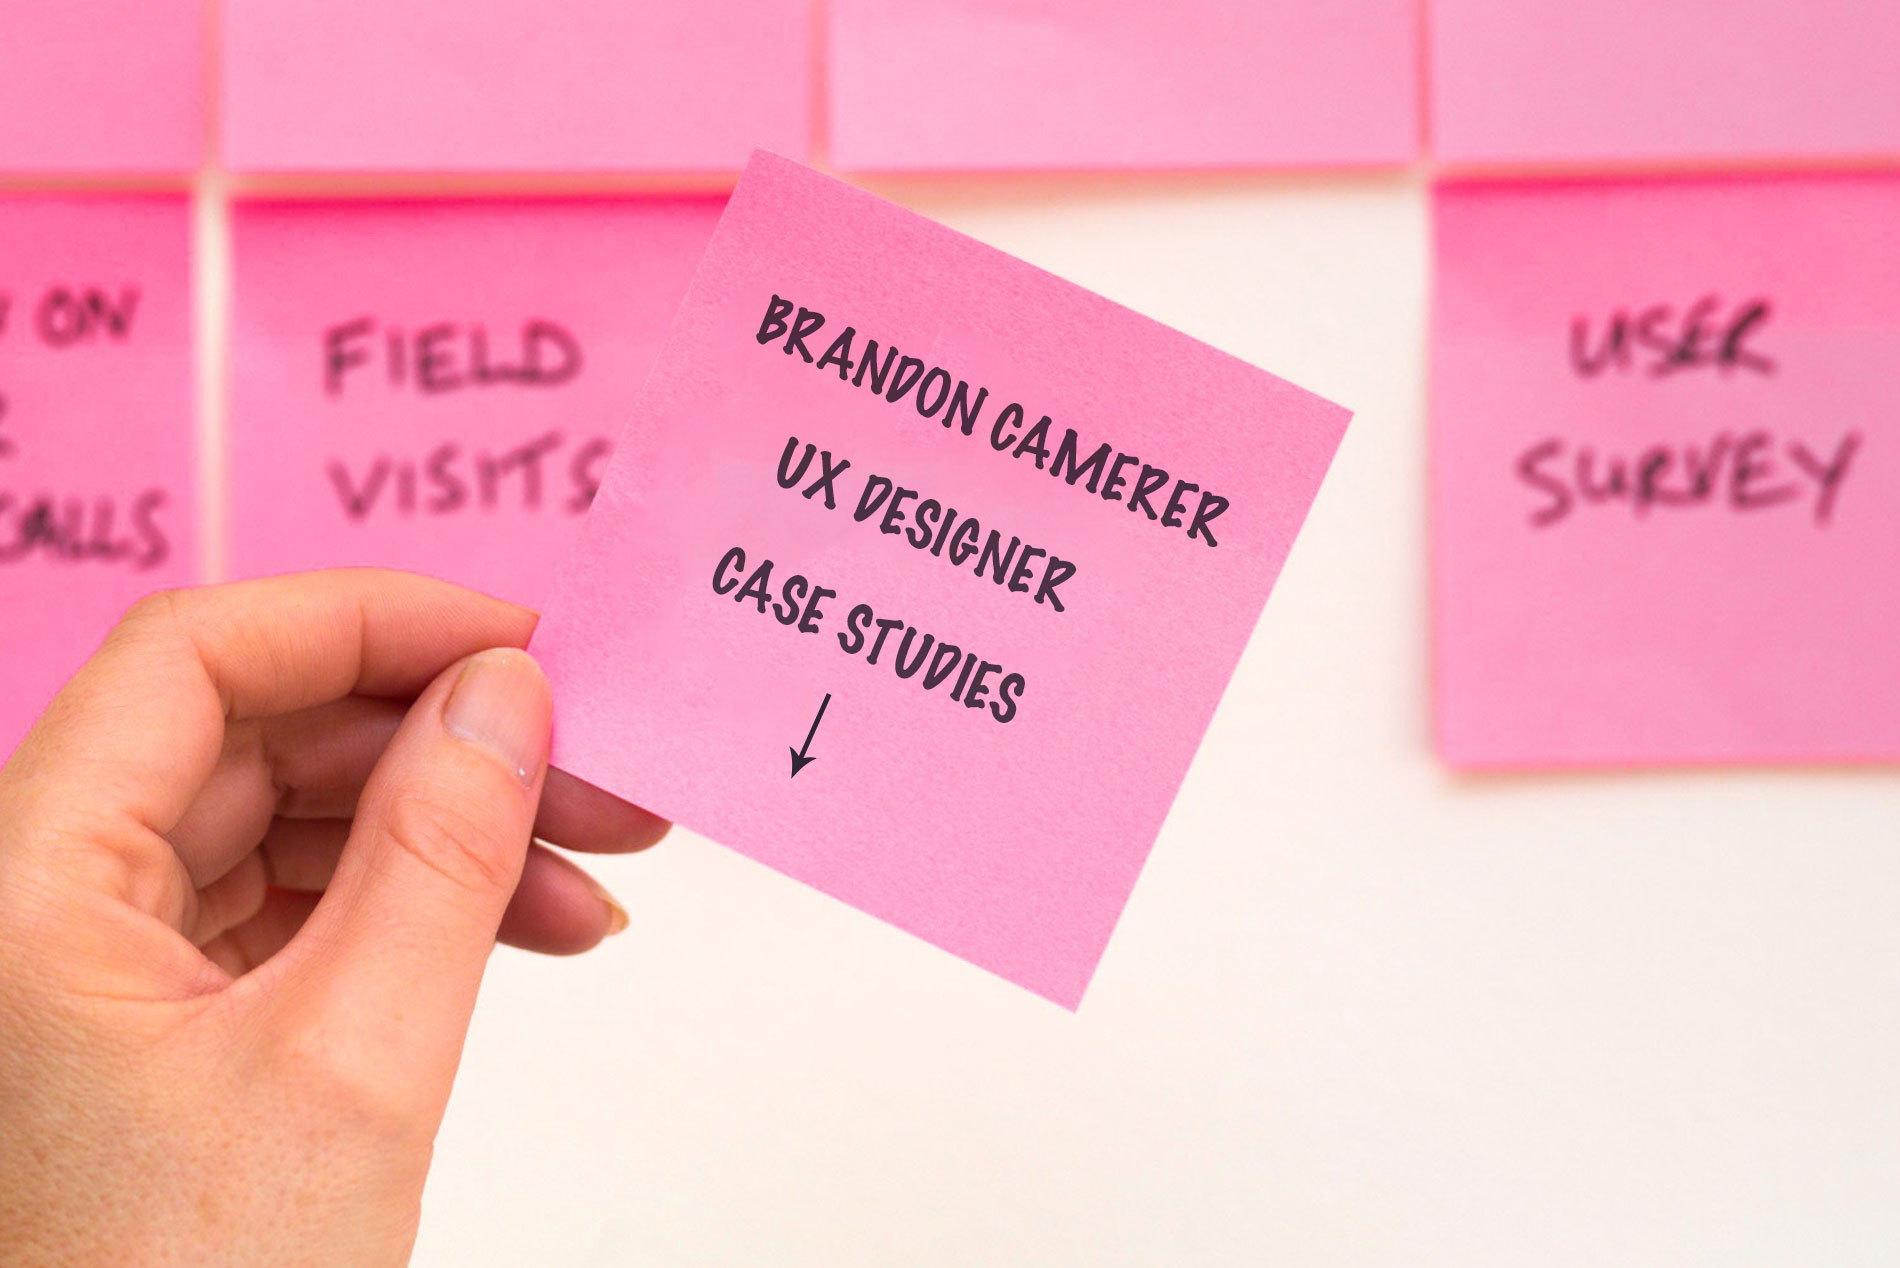 ON
CALLS
FIELD
VISITS
BRANDON CAMERER
UX DESIGNER
CASE STUDIES
USER
SURVEY